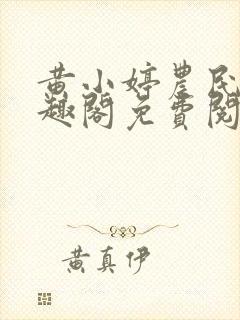 黄小婷農民
趣閣免費閱
黃真伊